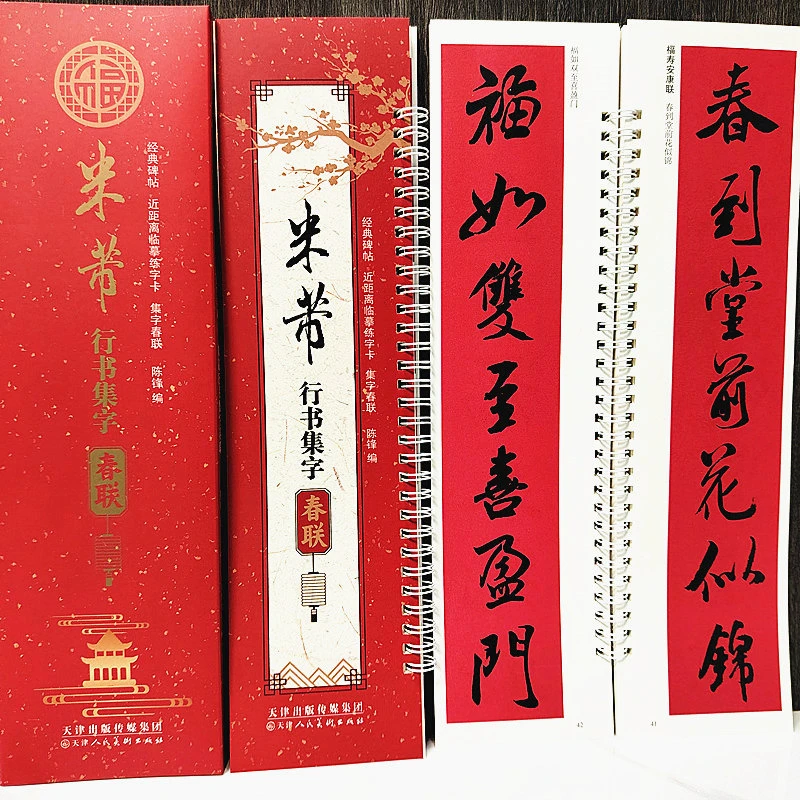 福
米芾
行书集字
春联
经典碑帖 近距离临摹练字卡 集字春联 陈锋 编
天津出版传媒集团
天津人民美术出版社
米芾
行书集字
春联
经典碑帖 近距离临摹练字卡 集字春联 陈锋 编
天津出版传媒集团
天津人民美术出版社
福寿安康联 春到堂前花似锦
春到堂前花似錦
41
福如双至喜盈门
福如雙至喜盈門
42